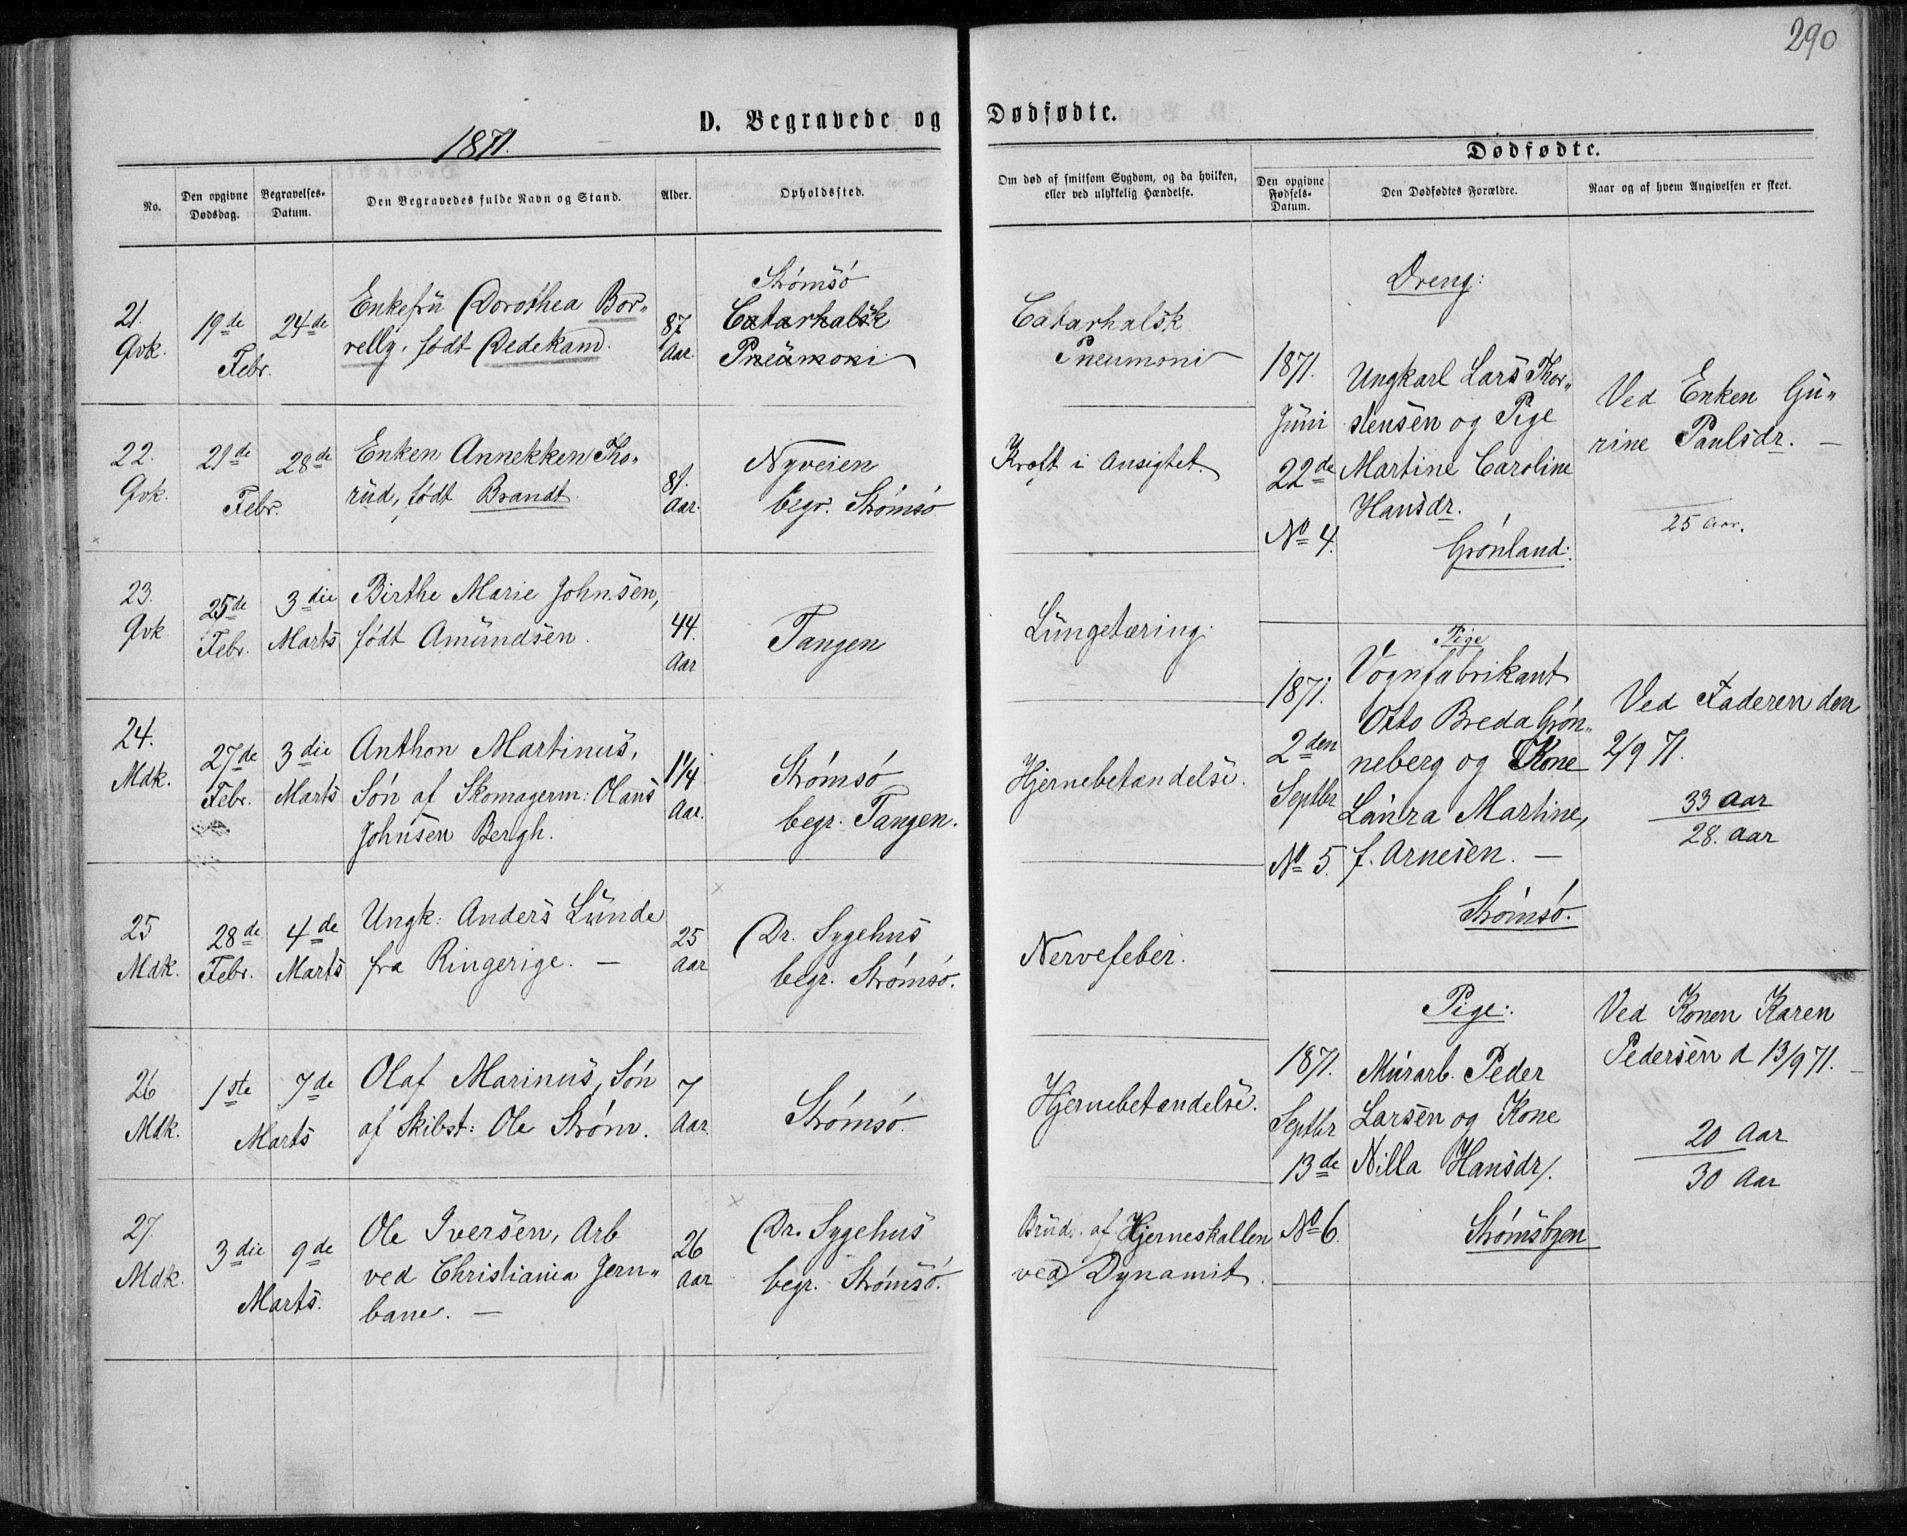 290
D. Begravede og Dødfødte.
1871.
Dødfødte.
No.
Den opgivne Dødsdag.
Begravelses-Datum.
Den Begravedes fulde Navn og Stand.
Alder.
Opholdssted.
Om død af smitsom Sygdom, og da hvilken, eller ved ulykkelig Hændelse.
Den opgivne Fødsels-Datum.
Den Dødfødtes Forældre.
Naar og af hvem Angivelsen er skeet.
21.
Qvk.
19de 24de
Febr.
Enkefrü Dorothea Bor-
relly, født Dedekam.
87
Aar.
Strømsö
Catarhalsk
Pneümoni
Catarhalsk
Pneumoni
22.
Qvk.
21de 28de
Febr.
Enken Annekken Tho-
rüd, født Brandt.
81.
Aar.
Nyveien
begr. Strømsö
Kræft i Ansigtet.
23.
Qvk
25de
Febr.
3die
Marts
Birthe Marie Johnsen,
født Amündsen.
44.
Aar
Tangen
Lüngetæring.
24.
Mdk.
27de
Febr.
3die
Marts
Anthon Martinus,
Søn af Skomagerm: Olaus
Johnsen Bergh.
1 1/4
Aar.
Strømsö
begr. Tangen.
Hjernebetændelse.
25
Mdk.
28de
Febr.
4de
Marts
Ungk: Anders Lünde
fra Ringerige. —
25
Aar
Dr. Sygehus
begr. Strømsö.
Nervefeber.
26
Mdk.
1ste 7de
Marts
Olaf Marinus, Søn
af Skibst: Ole Strøm.
7
Aar.
Strømsö.
Hjernebetændelse.
27.
Mdk.
3die 9de
Marts.
Ole Iversen, Arb
ved Christiania Jern-
bane. —
26
Aar
Dr. Sygehus
begr. Strømsö.
Brüd. af Hjerneskallen
ved Dynamit.
Dreng:
1871.
Jüni
22de
No 4.
Ungkarl Lars Thor-
stensen og Pige
Martine Caroline
Hansdr.
Grønland:
Ved Enken Gu-
rine Paulsdr. —
25 Aar.
Pige
1871.
2den
Septbr
No 5.
Vognfabrikant
Otto Breda Grøn-
neberg og Kone
Laura Martine,
f. Arnesen. —
Strømsö.
Ved Faderen den
2/9 71.
33 Aar
28. Aar
Pige:
1871.
Septbr
13de
No 6.
Mürarb. Peder
Larsen og Kone
Nilla Hansdr.
Strømsbyen
Ved Konen Karen
Pedersen d 13/9 71. —
20 Aar
30 Aar